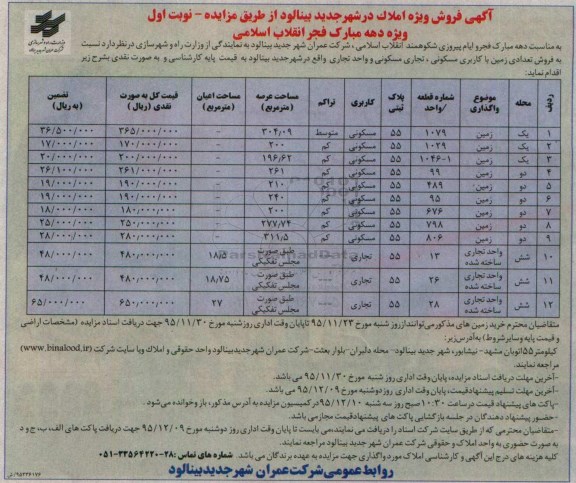 آگهی فروش ویژه املاک در شهر جدید بینالود از طریق مزایده - نوبت اول
ویژه دهه مبارک فجر انقلاب اسلامی
به مناسبت دهه مبارک فجر و ایام پیروزی شکوهمند انقلاب اسلامی، شرکت عمران شهر جدید بینالود به نمایندگی از وزارت راه و شهرسازی در نظر دارد نسبت
به فروش تعدادی زمین با کاربری مسکونی، تجاری مسکونی و واحد تجاری واقع در شهر جدید بینالود به قیمت پایه کارشناسی و به صورت نقدی بشرح زیر
اقدام نماید:
ردیف محله موضوع واگذاری شماره قطعه /واحد پلاک ثبتی کاربری تراکم مساحت عرصه (مترمربع) مساحت اعیان (مترمربع) قیمت کل به صورت نقدی (ریال) تضمین (به ریال)
۱ یک زمین ۱۰۷۹ ۵۵ مسکونی متوسط ۳۰۴٫۰۹ - ۳۶۵/۰۰۰/۰۰۰ ۳۶/۵۰۰/۰۰۰
۲ یک زمین ۱۰۲۹ ۵۵ مسکونی کم ۲۰۰ - ۱۷۰/۰۰۰/۰۰۰ ۱۷/۰۰۰/۰۰۰
۳ یک زمین ۱۰۴۶-۱ ۵۵ مسکونی کم ۱۹۶٫۶۲ - ۲۰۰/۰۰۰/۰۰۰ ۲۰/۰۰۰/۰۰۰
۴ دو زمین ۹۹ ۵۵ مسکونی کم ۲۶۱ - ۲۶۱/۰۰۰/۰۰۰ ۲۶/۱۰۰/۰۰۰
۵ دو زمین ۴۸۹ ۵۵ مسکونی کم ۲۱۰ - ۱۹۰/۰۰۰/۰۰۰ ۱۹/۰۰۰/۰۰۰
۶ دو زمین ۹۵ ۵۵ مسکونی کم ۲۴۰ - ۱۹۰/۰۰۰/۰۰۰ ۱۹/۰۰۰/۰۰۰
۷ دو زمین ۶۷۶ ۵۵ مسکونی کم ۲۰۰ - ۱۸۰/۰۰۰/۰۰۰ ۱۸/۰۰۰/۰۰۰
۸ دو زمین ۷۹۸ ۵۵ مسکونی کم ۲۷۷٫۷۴ - ۲۵۰/۰۰۰/۰۰۰ ۲۵/۰۰۰/۰۰۰
۹ دو زمین ۸۰۶ ۵۵ مسکونی کم ۳۱۱٫۵ - ۲۸۰/۰۰۰/۰۰۰ ۲۸/۰۰۰/۰۰۰
۱۰ شش واحد تجاری ساخته شده ۱۳ ۵۵ تجاری --- طبق صورت مجلس تفکیکی ۱۸٫۵ ۴۸۰/۰۰۰/۰۰۰ ۴۸/۰۰۰/۰۰۰
۱۱ شش واحد تجاری ساخته شده ۲۶ ۵۵ تجاری --- طبق صورت مجلس تفکیکی ۱۸٫۷۵ ۴۸۰/۰۰۰/۰۰۰ ۴۸/۰۰۰/۰۰۰
۱۲ شش واحد تجاری ساخته شده ۲۸ ۵۵ تجاری --- طبق صورت مجلس تفکیکی ۲۷ ۶۵۰/۰۰۰/۰۰۰ ۶۵/۰۰۰/۰۰۰
متقاضیان محترم خرید زمین های مذکور می‌توانند از روز شنبه مورخ ۹۵/۱۱/۲۳ تا پایان وقت اداری روز شنبه مورخ ۹۵/۱۱/۳۰ جهت دریافت اسناد مزایده (مشخصات اراضی
و قیمت پایه و سایر شروط) به آدرس زیر:
کیلومتر ۵۵ اتوبان مشهد- نیشابور، شهر جدید بینالود- محله دلبران- بلوار بعثت- شرکت عمران شهر جدید بینالود واحد حقوقی و املاک ویا سایت شرکت (www.binalood.ir)
مراجعه نمایند.
-آخرین مهلت دریافت اسناد مزایده، پایان وقت اداری روز شنبه مورخ ۹۵/۱۱/۳۰ می باشد.
-آخرین مهلت تسلیم پیشنهاد قیمت، پایان وقت اداری روز دوشنبه مورخ ۹۵/۱۲/۰۹ می باشد.
-پاکت های پیشنهاد قیمت در ساعت ۱۰:۳۰ صبح روز سه شنبه ۹۵/۱۲/۱۰ در کمیسیون مزایده به آدرس مذکور، باز و خوانده می‌شود.
-حضور پیشنهاد دهندگان در جلسه بازگشایی پاکت های پیشنهاد قیمت مجاز می باشد.
-متقاضیان محترمی که از طریق سایت شرکت اسناد را دریافت می نمایند، می بایست تا پایان وقت اداری روز دوشنبه مورخ ۹۵/۱۲/۰۹ جهت دریافت پاکت های الف، ب، ج و د
به صورت حضوری به واحد املاک و حقوقی شرکت عمران شهر جدید بینالود مراجعه نمایند.
کلیه هزینه های درج این آگهی و کارشناسی املاک مورد واگذاری جهت مزایده به عهده برندگان می باشد. شماره های تماس: ۲۸-۳۳۵۶۴۲۲۰-۰۵۱
روابط عمومی شرکت عمران شهر جدید بینالود